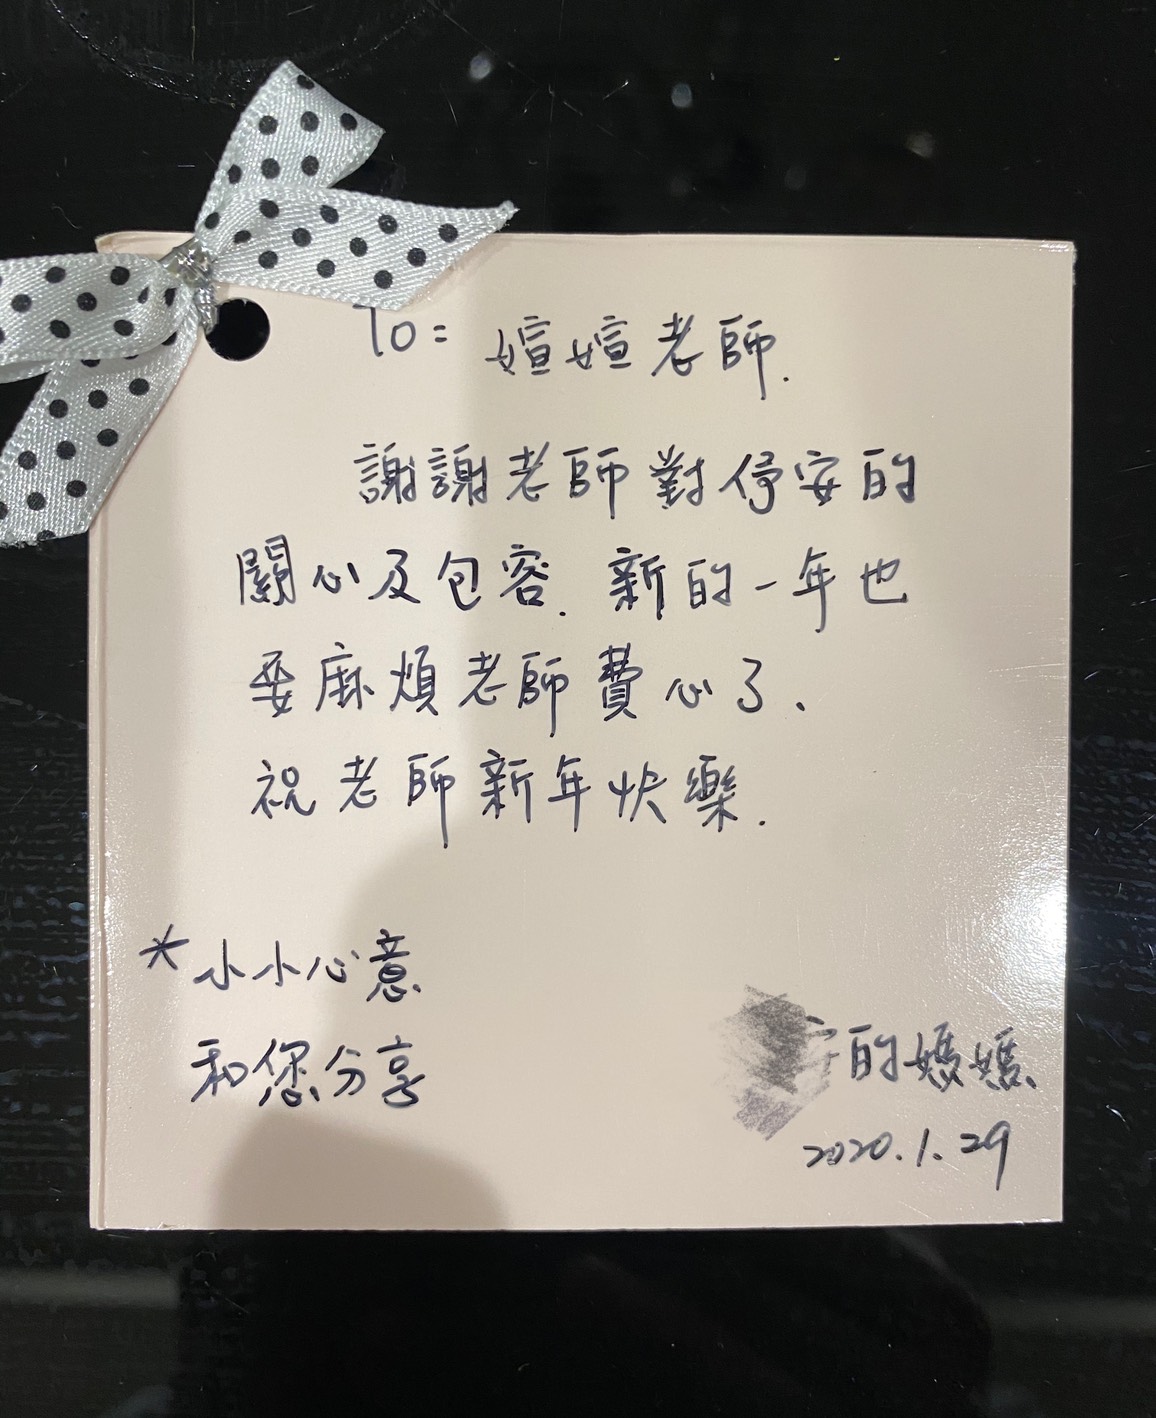 To: 媗媗老師.
謝謝老師對伃安的
關心及包容. 新的一年也
要麻煩老師費心了、
祝老師新年快樂.
*小小心意
和您分享
安的媽媽
2020.1.29